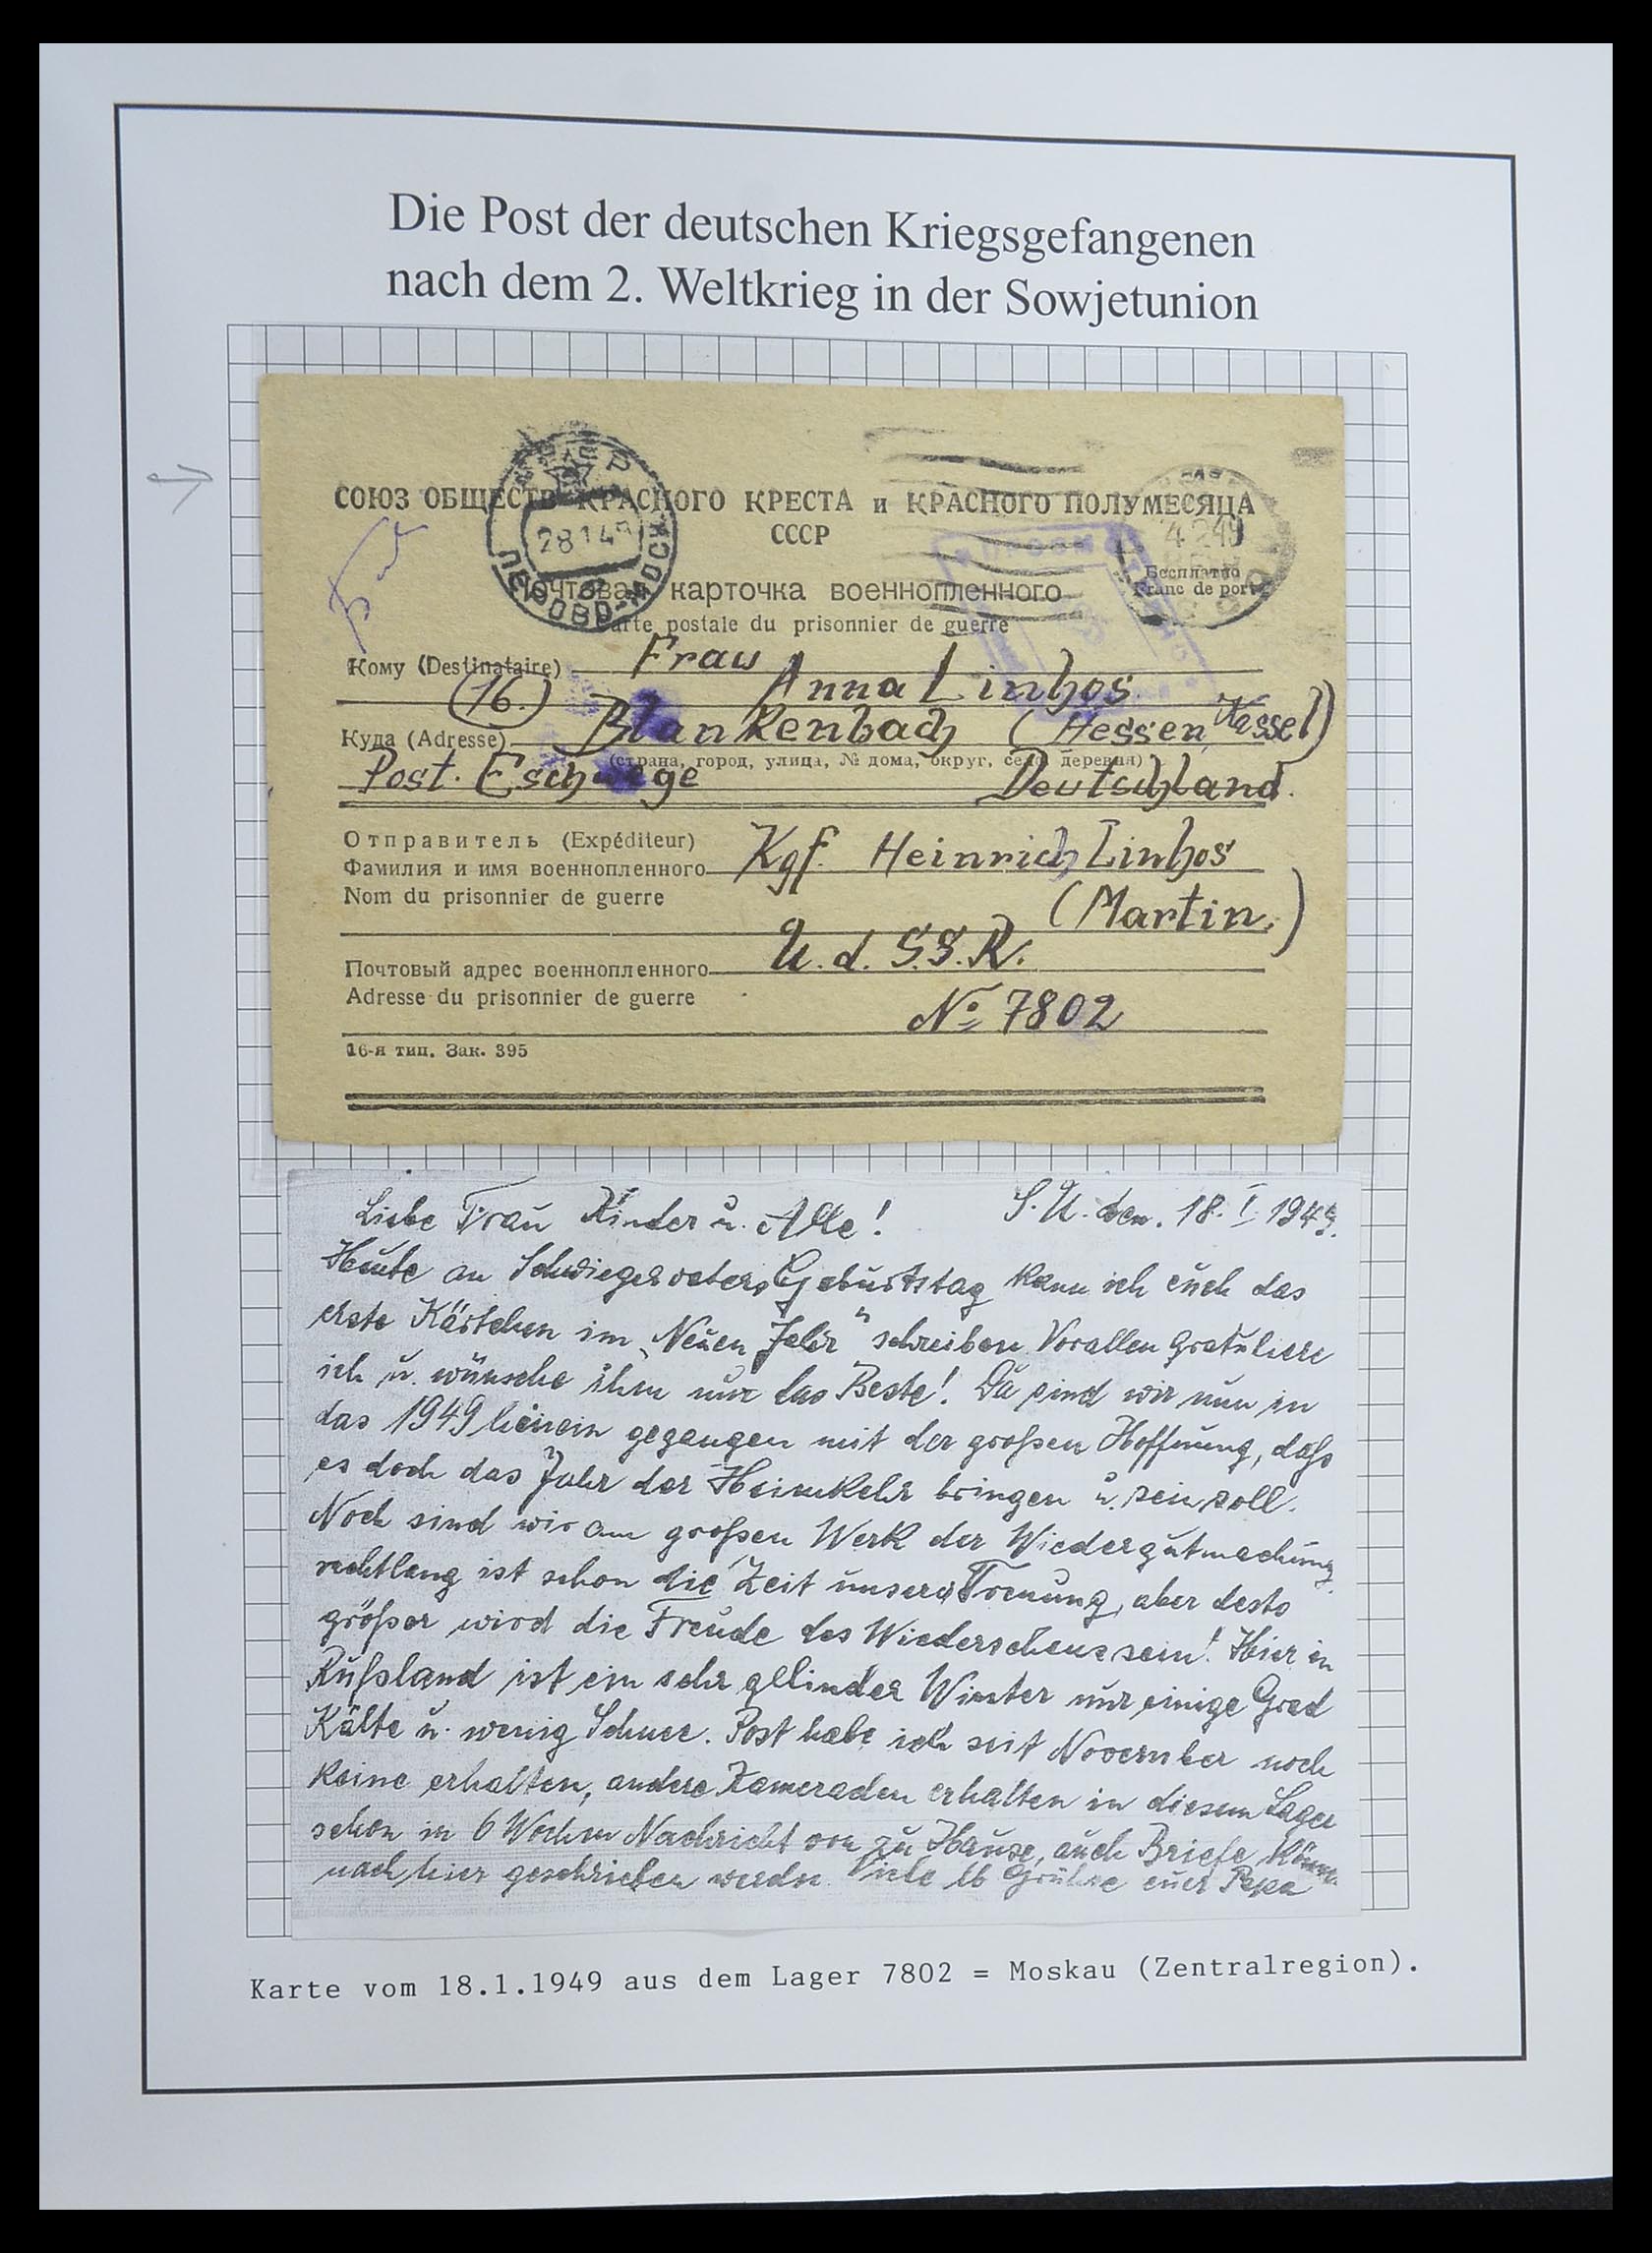 Die Post der deutschen Kriegsgefangenen
nach dem 2. Weltkrieg in der Sowjetunion
СОЮЗ ОБЩЕСТВ КРАСНОГО КРЕСТА и КРАСНОГО ПОЛУМЕСЯЦА
СССР
28 1 49
ПЕРОВО-МОСК
4 2 49
Бесплатно
Franc de port
Почтовая карточка военнопленного
Carte postale du prisonnier de guerre
Кому (Destinataire) Frau
Anna Linhos
(16.) Blankenbach (Hessen Kassel)
Куда (Adresse)
(страна, город, улица, № дома, округ, село, деревня)
Post. Eschwege Deutschland.
Отправитель (Expéditeur)
Фамилия и имя военнопленного Kgf. Heinrich Linhos
Nom du prisonnier de guerre
(Martin.)
Почтовый адрес военнопленного U.d.S.S.R.
Adresse du prisonnier de guerre
№ 7802
16-я тип. Зак. 395
Liebe Frau Kinder u. Alle! S.U. den. 18. I. 1949.
Heute an Schwiegervaters Geburtstag kann ich euch das
erste Kärtchen im „Neuen Jahr" schreiben. Vorallen gratuliere
ich u. wünsche ihm nur das Beste! Da sind wir nun in
das 1949 hinein gegangen mit der großen Hoffnung, daß
es doch das Jahr der Heimkehr bringen u. sein soll.
Noch sind wir am großen Werk der Wiedergutmachung
rechtlang ist schon die Zeit unserer Trenung, aber desto
größer wird die Freude des Wiedersehens sein! Hier in
Rußland ist ein sehr gelinder Winter nur einige Grad
Kälte u. wenig Schnee. Post habe ich seit November noch
keine erhalten, andere Kameraden erhalten in diesem Lager
schon in 6 Wochen Nachricht von zu Hause, auch Briefe können
nach hier geschrieben werden. Viele lb Grüße euer Papa
Karte vom 18.1.1949 aus dem Lager 7802 = Moskau (Zentralregion).